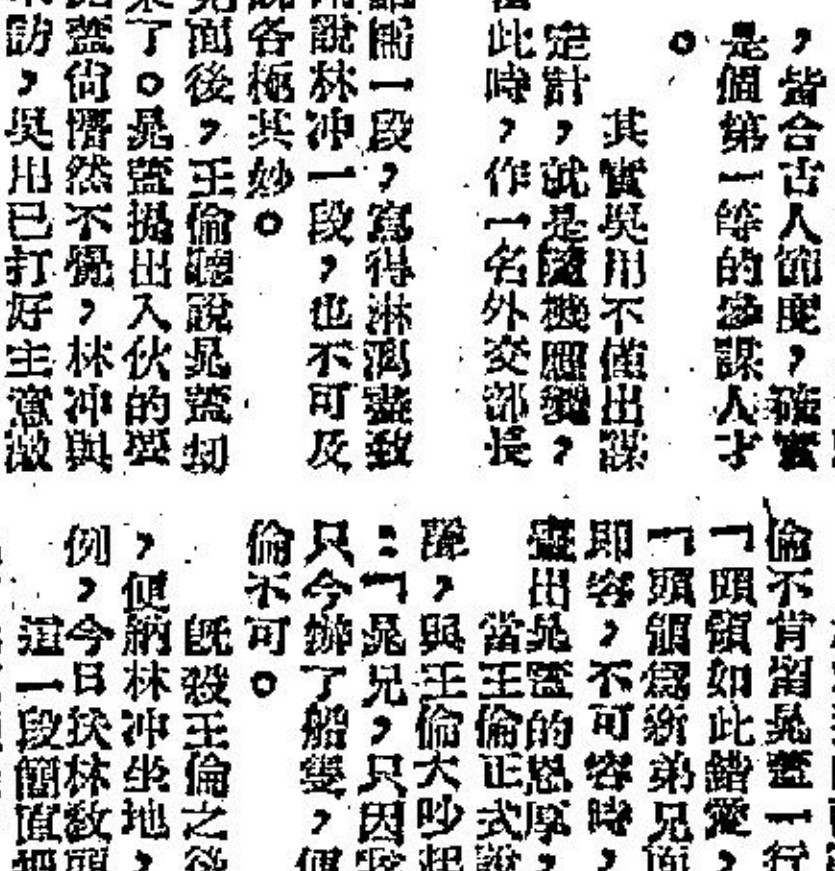 ，皆合古人節度，確實
是個第一等的參謀人才
。
其實吳用不僅出謀
定計，就是隨機應變，
此時，作一名外交部長
一段，寫得淋漓盡致
說林冲一段，也不可及
各極其妙。
面後，王倫聽說晁蓋刼
了。晁蓋提出入伙的要
蓋尙懵然不覺，林冲與
訪，吳用已打好主意激
倫不肯留晁蓋一行
「頭領如此錯愛，
「頭領爲新弟兄面
即容，不可容時，
盡出晁蓋的恩厚，
當王倫正式說
，與王倫大吵起
：「晁兄，只因我
只今辦了船隻，便
倫不可。
旣殺王倫之後
，便納林冲坐地，
例，今日扶林敎頭
這一段簡直把